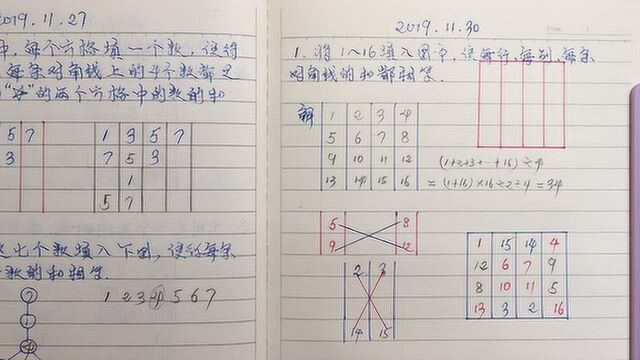 2019.11.27
每个方格填一个数,使得
每条对角线上的4个数都是
的两个方格中的数的和
5 7
3
1 3 5 7
7 5 3
1
5 7
七个数填入下图,使得每条
数的和相等.
7
1
4
1 2 3 4 5 6 7
2019.11.30
1. 将1~16填入图中,使每行、每列、每条
对角线的和都相等.
解
1 2 3 4
5 6 7 8
9 10 11 12
13 14 15 16
(1+2+3+…+16)÷4
=(1+16)×16÷2÷4=34
5 8
9 12
2 3
14 15
1 15 14 4
12 6 7 9
8 10 11 5
13 3 2 16